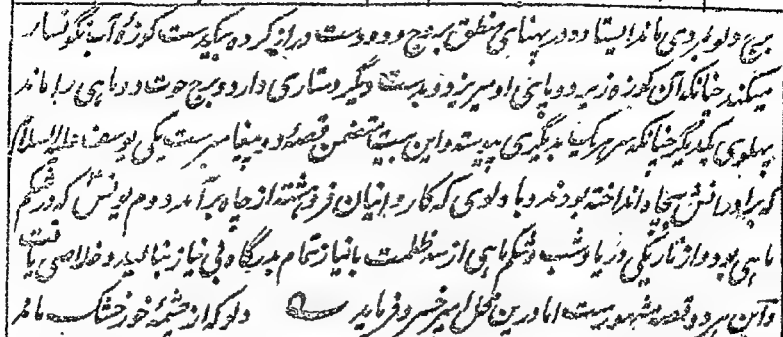 برج دلو بمردی ماند ایستاده در پهنای منطق بروج و دو دست دراز کرده بیکدست کوزۀ آب نگونسار
میکند چنانکه آن کوزه زیر دو پای او میریزد و بدست دیگر دستاری دارد و برج حوت دو ماهی را ماند
پهلوی یکدیگر چنانکه سر هر یکی بدیگری پیوسته و این بیت متضمن قصۀ دو پیغامبرست یکی یوسف علیه السلام
که برادرانش بچاه انداخته بودند و با دلوی که کاروانیان فروهشتند از چاه برآمد و دوم یونس که در شکم
ماهی بود و از تاریکی دریا و شب و شکم ماهی از سه ظلمت با نیاز تمام بدرگاه بی نیاز بنالید و خلاصی یافت
و این هر دو قصه مشهورست اما درین محل امیر خسرو فرماید دلو که از چشمۀ خور خشک ماند